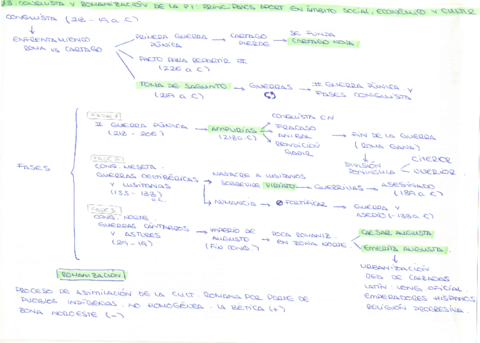 1.3. CONQUISTA Y ROMANIZACIÓN DE LA P.I: PRINCIPALES APORT EN ÁMBITO SOCIAL, ECONÓMICO Y CULTUR
CONQUISTA (218 - 19 a C)
ENFRENTAMIENTO ROMA VS CARTAGO
PRIMERA GUERRA PÚNICA
CARTAGO PIERDE
SE FUNDA CARTAGO NOVA
PACTO PARA REPARTIR
(226 a C)
TOMA DE SAGUNTO
(219 a C)
GUERRAS
II GUERRA PÚNICA Y FASES CONQUISTA
FASES
II GUERRA PÚNICA
(218 - 206)
AMPURIAS
(218 a C)
CONQUISTA CN
FRACASO ANIBAL
RENDICIÓN GADIR
FIN DE LA GUERRA
(ROMA GANA)
DIVISIÓN PENÍNSULA
CITERIOR
ULTERIOR
CONQ. MESETA
GUERRAS CELTIBÉRICAS Y LUSITANAS
MASACRE A LUSITANOS
SOBREVIVE VIRIATO
GUERRILLAS
ASESINADO
NUMANCIA
FORTIFICAR
GUERRA Y ASEDIO (-133 a C)
CONQ. NORTE
GUERRAS CÁNTABROS Y ASTURES
(29 - 19)
IMPERIO DE AUGUSTO
POCA ROMANIZ. EN ZONA NORTE
CAESAR AUGUSTA
EMERITA AUGUSTA
URBANIZACIÓN
RED DE CALZADAS
LATÍN: LENG OFICIAL
EMPERADORES HISPANOS
RELIGIÓN PROGRESIVA.
ROMANIZACIÓN
PROCESO DE ASIMILACIÓN DE LA CULT. ROMANA POR PARTE DE
PUEBLOS INDÍGENAS. NO HOMOGÉNEA. LA BÉTICA (+)
ZONA NOROESTE (-)